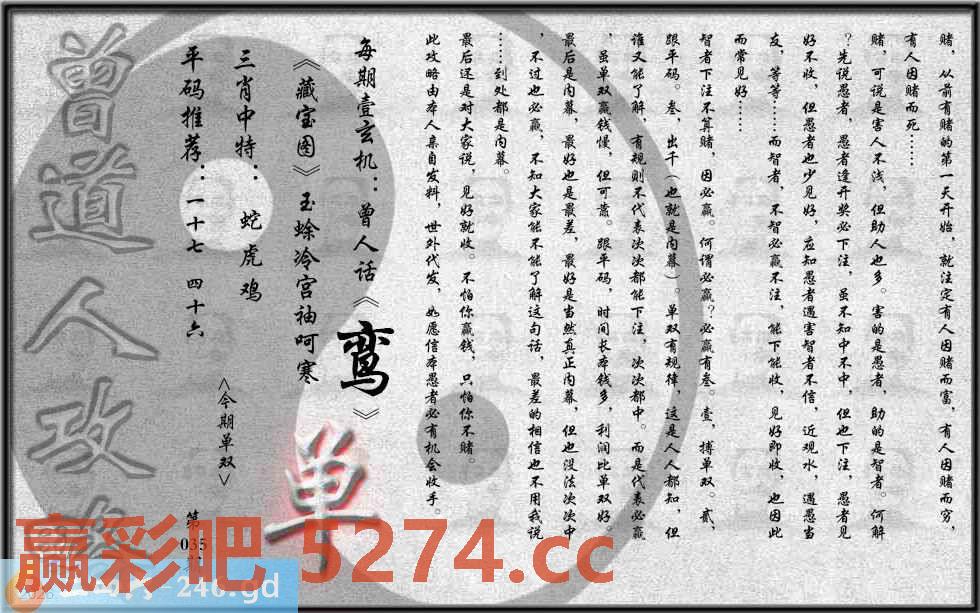 赌，从前有赌的第一天开始，就注定有人因赌而富，有人因赌而穷，
有人因赌而死……
赌，可说是害人不浅，但助人也多。害的是愚者，助的是智者。何解
？先说愚者，愚者逢开奖必下注，虽不知中不中，但也下注，愚者见
好不收，但愚者也少见好，应知愚者遇害智者不信，近观水，遇愚当
友，等等……而智者，不智必赢不注，能下能收，见好即收，也因此
而常见好……
智者下注不算赌，因必赢。何谓必赢？必赢有叁。壹，搏单双。贰，
跟平码。叁，出千（也就是内幕）。单双有规律，这是人人都知，但
谁又能了解，有规则不代表次次都能下注，次次都中。而是代表必赢
，虽单双赢钱慢，但可靠。跟平码，时间长本钱多，利润比单双好。
最后是内幕，最好也是最差，最好是当然真正内幕，但也没法次次中
，不过也必赢，不知大家能不能了解这句话，最差的相信也不用我说
……到处都是内幕。
最后还是对大家说，见好就收。不怕你赢钱，只怕你不赌。
此攻略由本人亲自发料，世外代发，如愿信本愚者必有机会收手。
每期壹玄机：曾人话《鸾》
《藏宝图》玉蜍冷宫袖呵寒
三肖中特：蛇虎鸡
平码推荐：一十七 四十六
<今期单双>
单
第035
曾道人攻
赢彩吧 5274.cc
246.gd